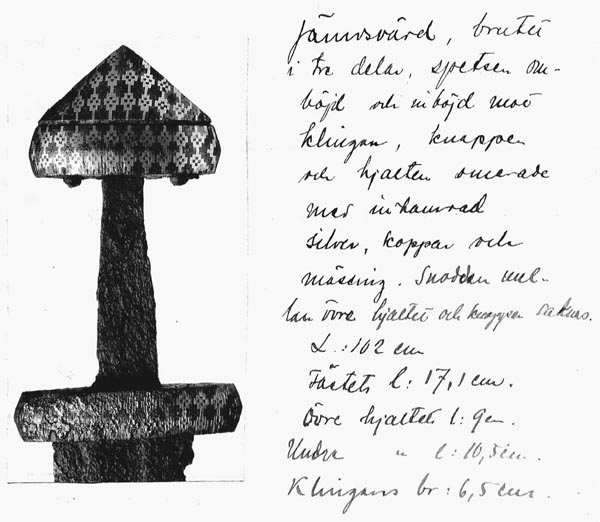 Järnsvärd, brutet
i tre delar, spetsen om-
böjd och inböjd mot
klingan, knappen
och hjalten smerade
med inhamrad
silver, koppar och
mässing. Snodden mel-
lan övre hjaltet och knappen saknas.
L.: 102 cm
Fästets l: 17,1 cm.
Övre hjaltet l: 9 cm.
Undre " l: 10,5 cm.
Klingans br: 6,5 cm.